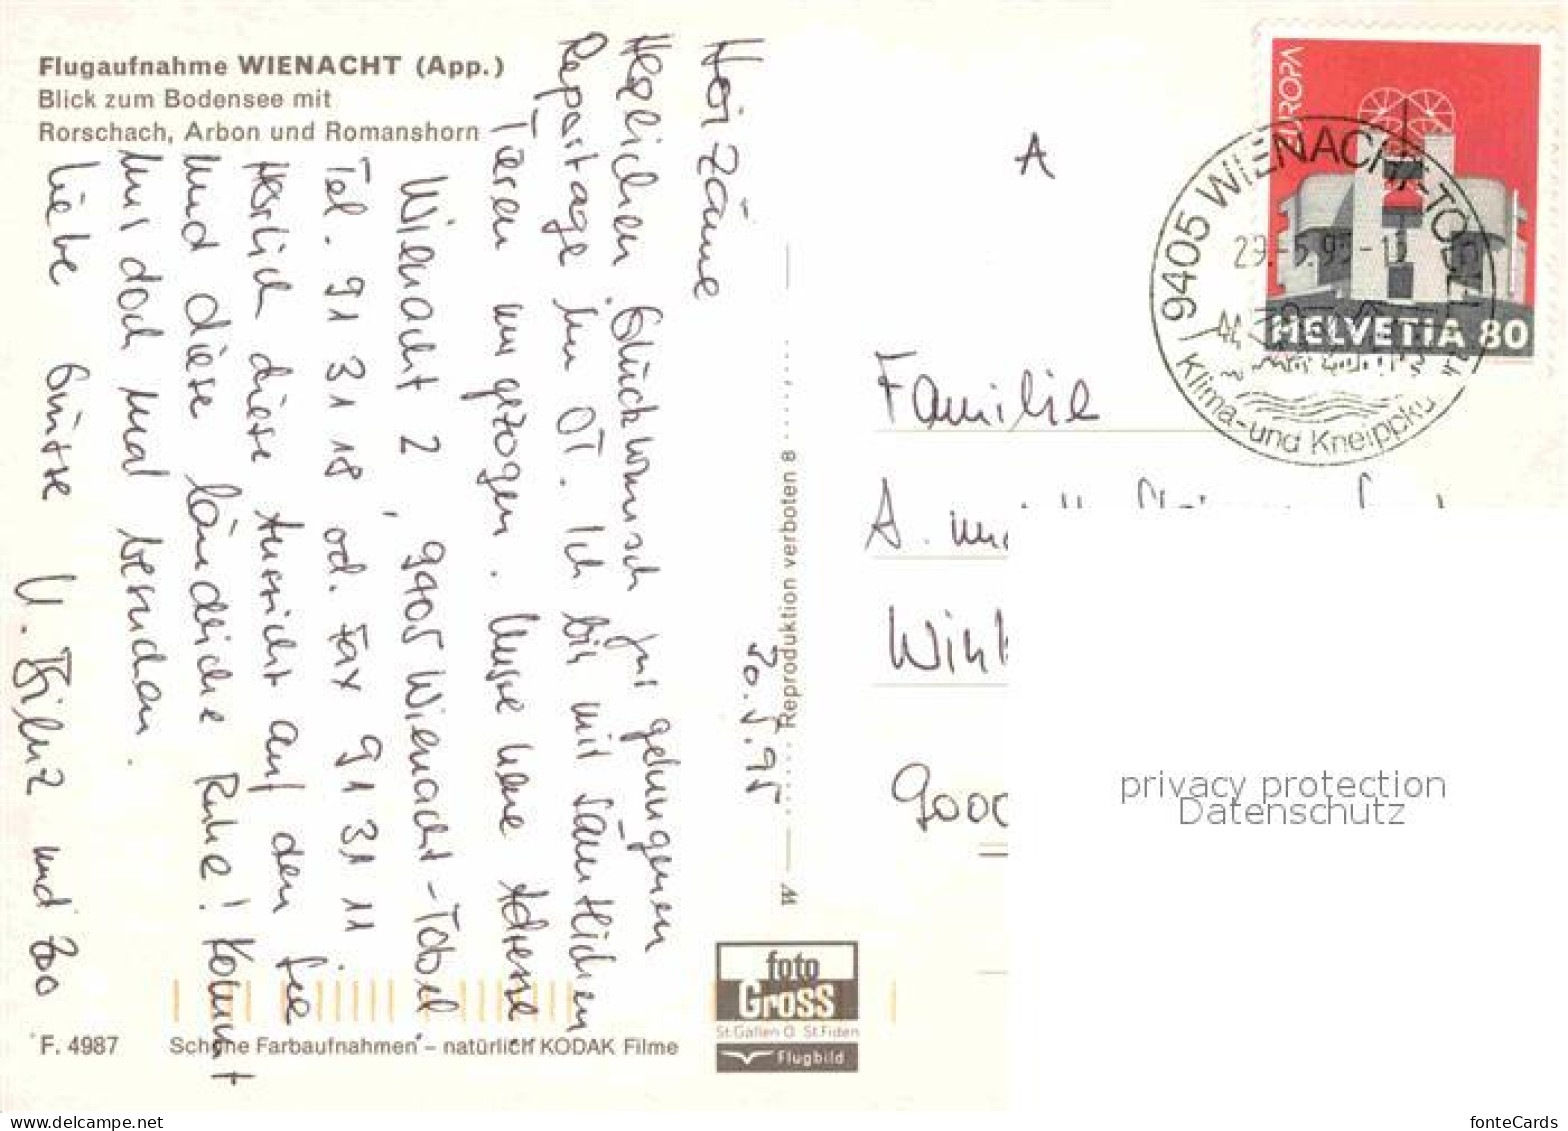 Flugaufnahme WIENACHT (App.)
Blick zum Bodensee mit
Rorschach, Arbon und Romanshorn
Hoi zäme
30.5.95
Herzlichen Glückwunsch zur gelungenen
Reportage im OT. Ich bin mit sämtlichen
Tieren umgezogen. Unsere neue Adresse:
Wienacht 2, 9405 Wienacht-Tobel.
Tel. 91 31 18 od. Fax 91 31 11
Herrlich diese Aussicht auf den See
und diese ländliche Ruhe! Kommt
uns doch mal besuchen.
Liebe Grüsse U. und Zoo
Reproduktion verboten 8
A
EUROPA
HELVETIA 80
9405 WIENACHT-TOBEL
Klima- und Kneippku
Familie
A. und
privacy protection
Datenschutz
foto
Gross
St.Gallen O St.Fiden
Flugbild
F. 4987
Schöne Farbaufnahmen – natürlich KODAK Filme
fonteCards